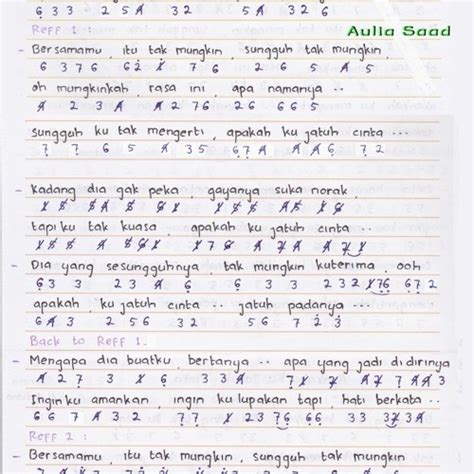 6 3 3 2 5 4 3 2 5 4 3 2 6
Reff 1 :
Aulla Saad
- Bersamamu, itu tak mungkin, sungguh tak mungkin,
6 3 7 6 6 2 1 7 6 2 6 5 4 5
oh mungkinkah, rasa ini, apa namanya ..
4 2 3 4 4 2 7 6 2 6 6 6 5
sungguh ku tak mengerti, apakah ku jatuh cinta ...
7 7 6 5 4 3 5 6 7 4 4 4 6 7 2
- Kadang dia gak peka, gayanya suka norak,
tapi ku tak kuasa, apakah ku jatuh cinta ..
- Dia yang sesungguhnya, tak mungkin kuterima, ooh
6 3 3 2 3 4 6 6 3 3 3 2 3 2 1 7 6 6 7 2
apakah, ku jatuh cinta .. jatuh padanya ....
6 4 3 2 5 6 3 2 5 6 7 2 3
Back to Reff 1.
- Mengapa dia buatku, bertanya .. apa yang jadi didirinya
4 2 7 3 1 6 3 3 4 7 1 7 4 7 7 4 4 3
Inginku amankan, ingin ku lupakan tapi, hati berkata ..
6 6 7 4 3 2 7 7 1 2 3 7 6 6 6 3 3 3 2 3 4
Reff 2 :
- Bersamamu, itu tak mungkin, sungguh tak mungkin